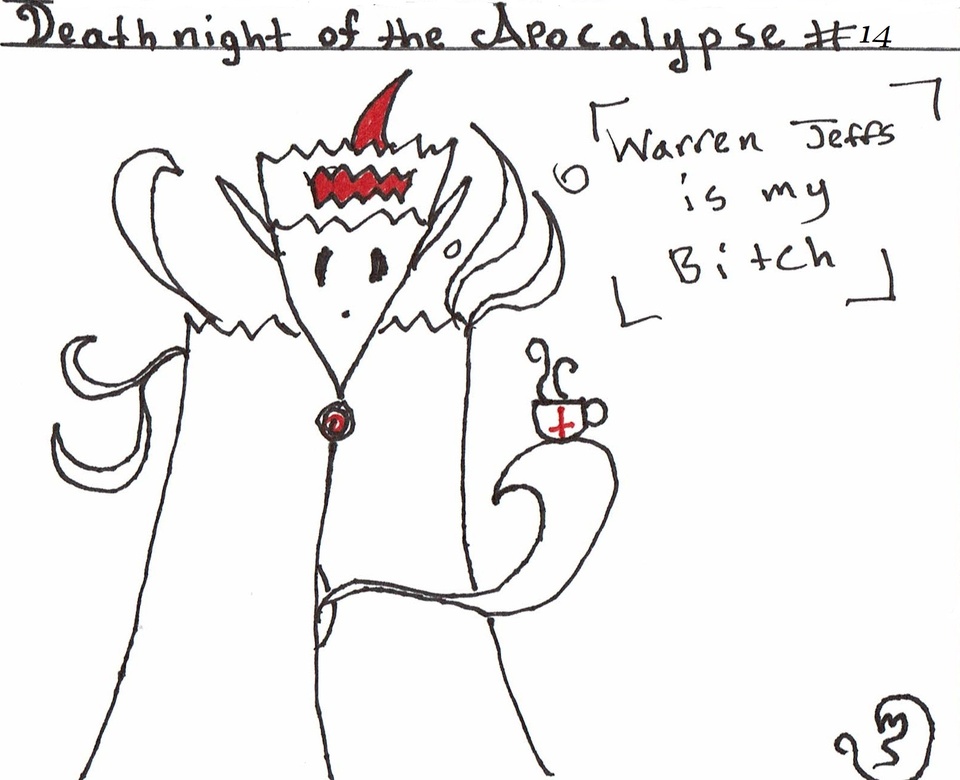 Deathnight of the Apocalypse #14
Warren Jeffs
is my
Bitch